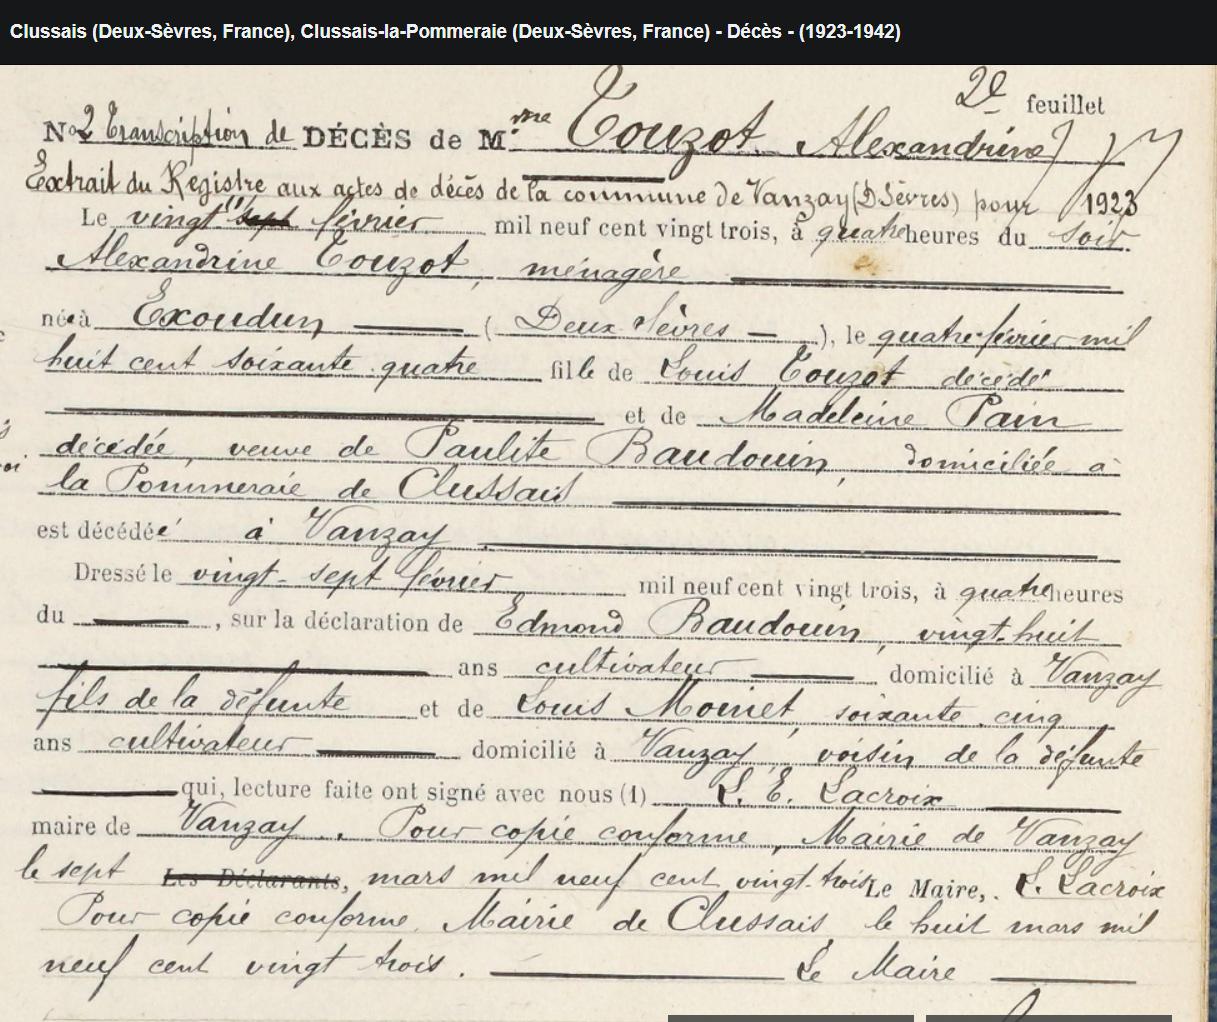 Clussais (Deux-Sèvres, France), Clussais-la-Pommeraie (Deux-Sèvres, France) - Décès - (1923-1942)
2e feuillet
No 2 Transcription de DÉCÈS de Mme Touzot Alexandrine
Extrait du Registre aux actes de décès de la commune de Vanzay (D Sèvres) pour 1923
Le vingt sept février mil neuf cent vingt trois, à quatre heures du soir
Alexandrine Touzot, ménagère
née à Exoudun ( Deux Sèvres ), le quatre février mil
huit cent soixante quatre fille de Louis Touzot décédé
et de Madeleine Pain
décédée, veuve de Paulite Baudouin, domiciliée à
la Pommeraie de Clussais
est décédée à Vanzay
Dressé le vingt-sept février mil neuf cent vingt trois, à quatre heures
du , sur la déclaration de Edmond Baudouin, vingt-huit
ans cultivateur domicilié à Vanzay
fils de la défunte et de Louis Moinet, soixante cinq
ans cultivateur domicilié à Vanzay, voisin de la défunte
qui, lecture faite ont signé avec nous (1) L. E. Lacroix
maire de Vanzay. Pour copie conforme, Mairie de Vanzay
le sept Les Déclarants, mars mil neuf cent vingt-trois Le Maire,. L. Lacroix
Pour copie conforme, Mairie de Clussais le huit mars mil
neuf cent vingt trois. Le Maire